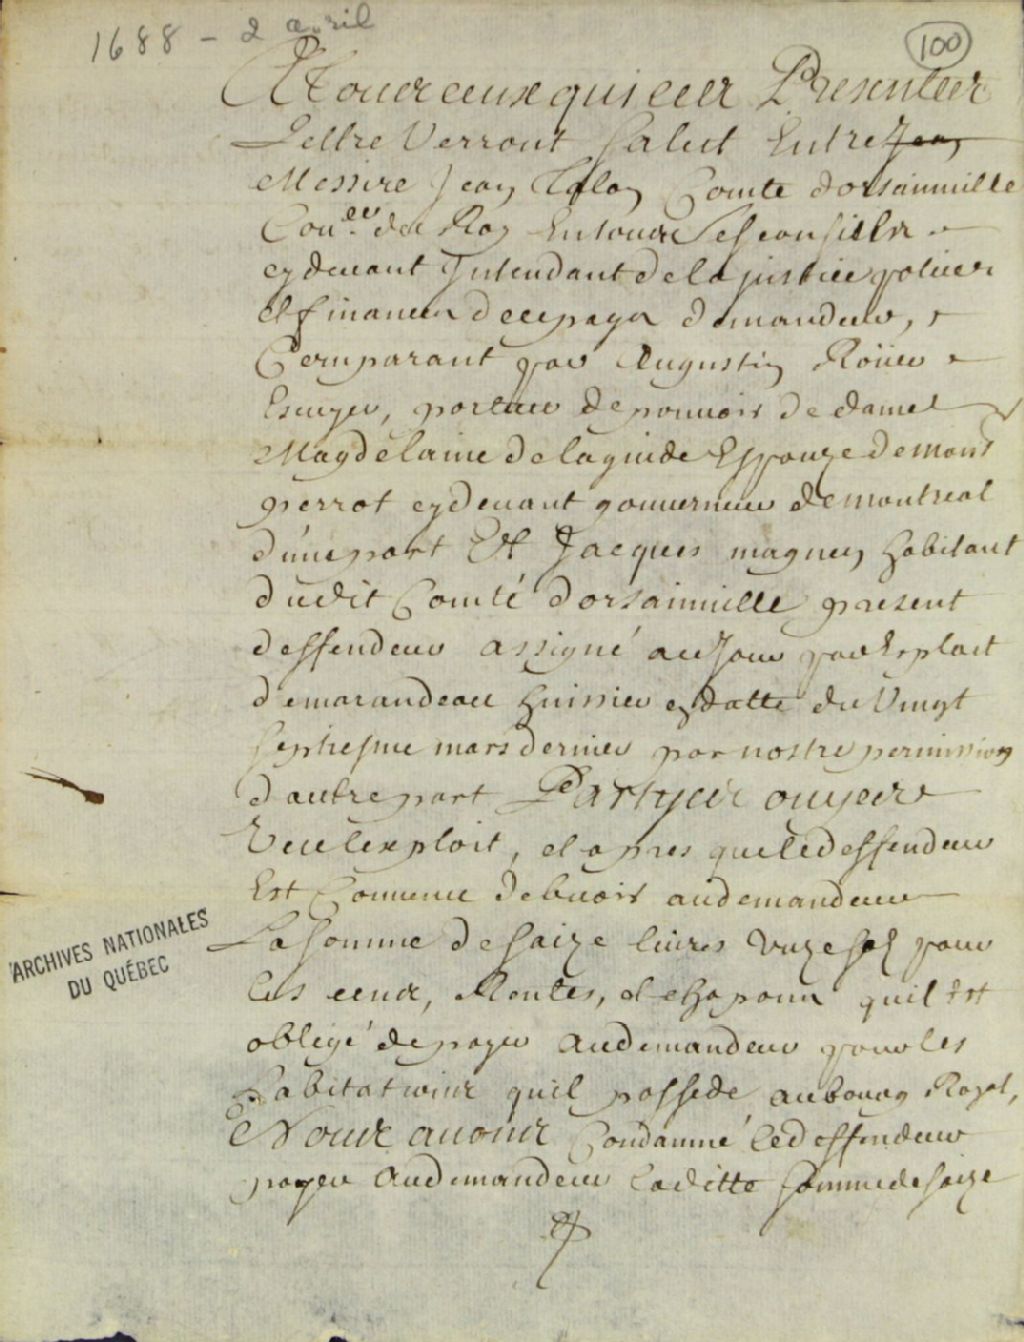 1688 - 2 avril
100
A Tous ceux qui ces Presentes
Lettre Verront Salut Entre Jean
Messire Jean Talon Comte dorsainville
Con.er du Roy En tous Ses conseilx
cy devant Intendant de la justice police
et finances de ce pays demandeur,
Comparant par Augustin Roüer
Escuyer, porteur de pouvoir de dame
Magdelaine de laguide Espouze de mons.r
perrot cy devant gouverneur de montreal
d'une part Et Jacques magnen habitant
dudit Comté dorsainville present
deffendeur assigné au Jour par Exploit
de marandeau huissier en datte du Vingt
septiesme mars dernier par nostre permission
d'autre part Partyes ouyes
Veu lexploit, et apres que le deffendeur
Est Convenu debvoir au demandeur
La Somme de Saize livres unze solz pour
les cens, Rentes, et chapons quil est
obligé de payer au demandeur pour les
habitations quil possede au bourg Royal,
Nous avons Condamné le deffendeur
payer au demandeur laditte somme de saize
ARCHIVES NATIONALES
DU QUÉBEC